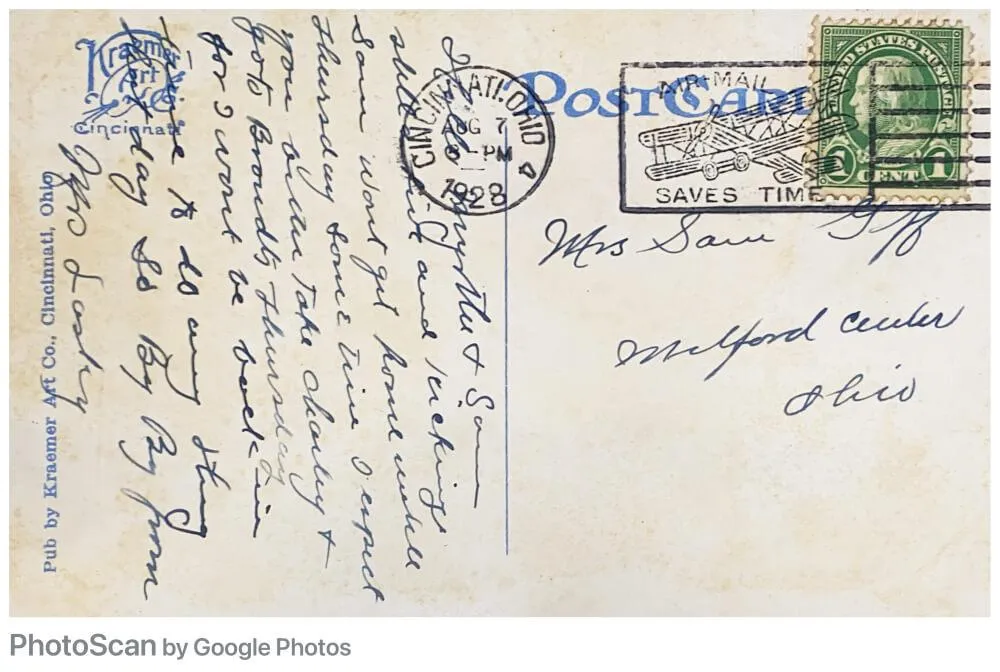 Kraemer
Art
Co
Cincinnati
POST CARD
CINCINNATI, OHIO
AUG 7
PM
1928
4
AIR-MAIL
SAVES TIME
UNITED STATES POSTAGE
1 CENT 1
Myrtle & Sam
still and kicking
Sam wont get home untill
thursday some time I expect
you better take charley &
thursday
for I wont be back in
time to do any thing
that day So By By from
Mrs Sam
Milford Center
Ohio
Pub by Kraemer Art Co., Cincinnati, Ohio
PhotoScan by Google Photos